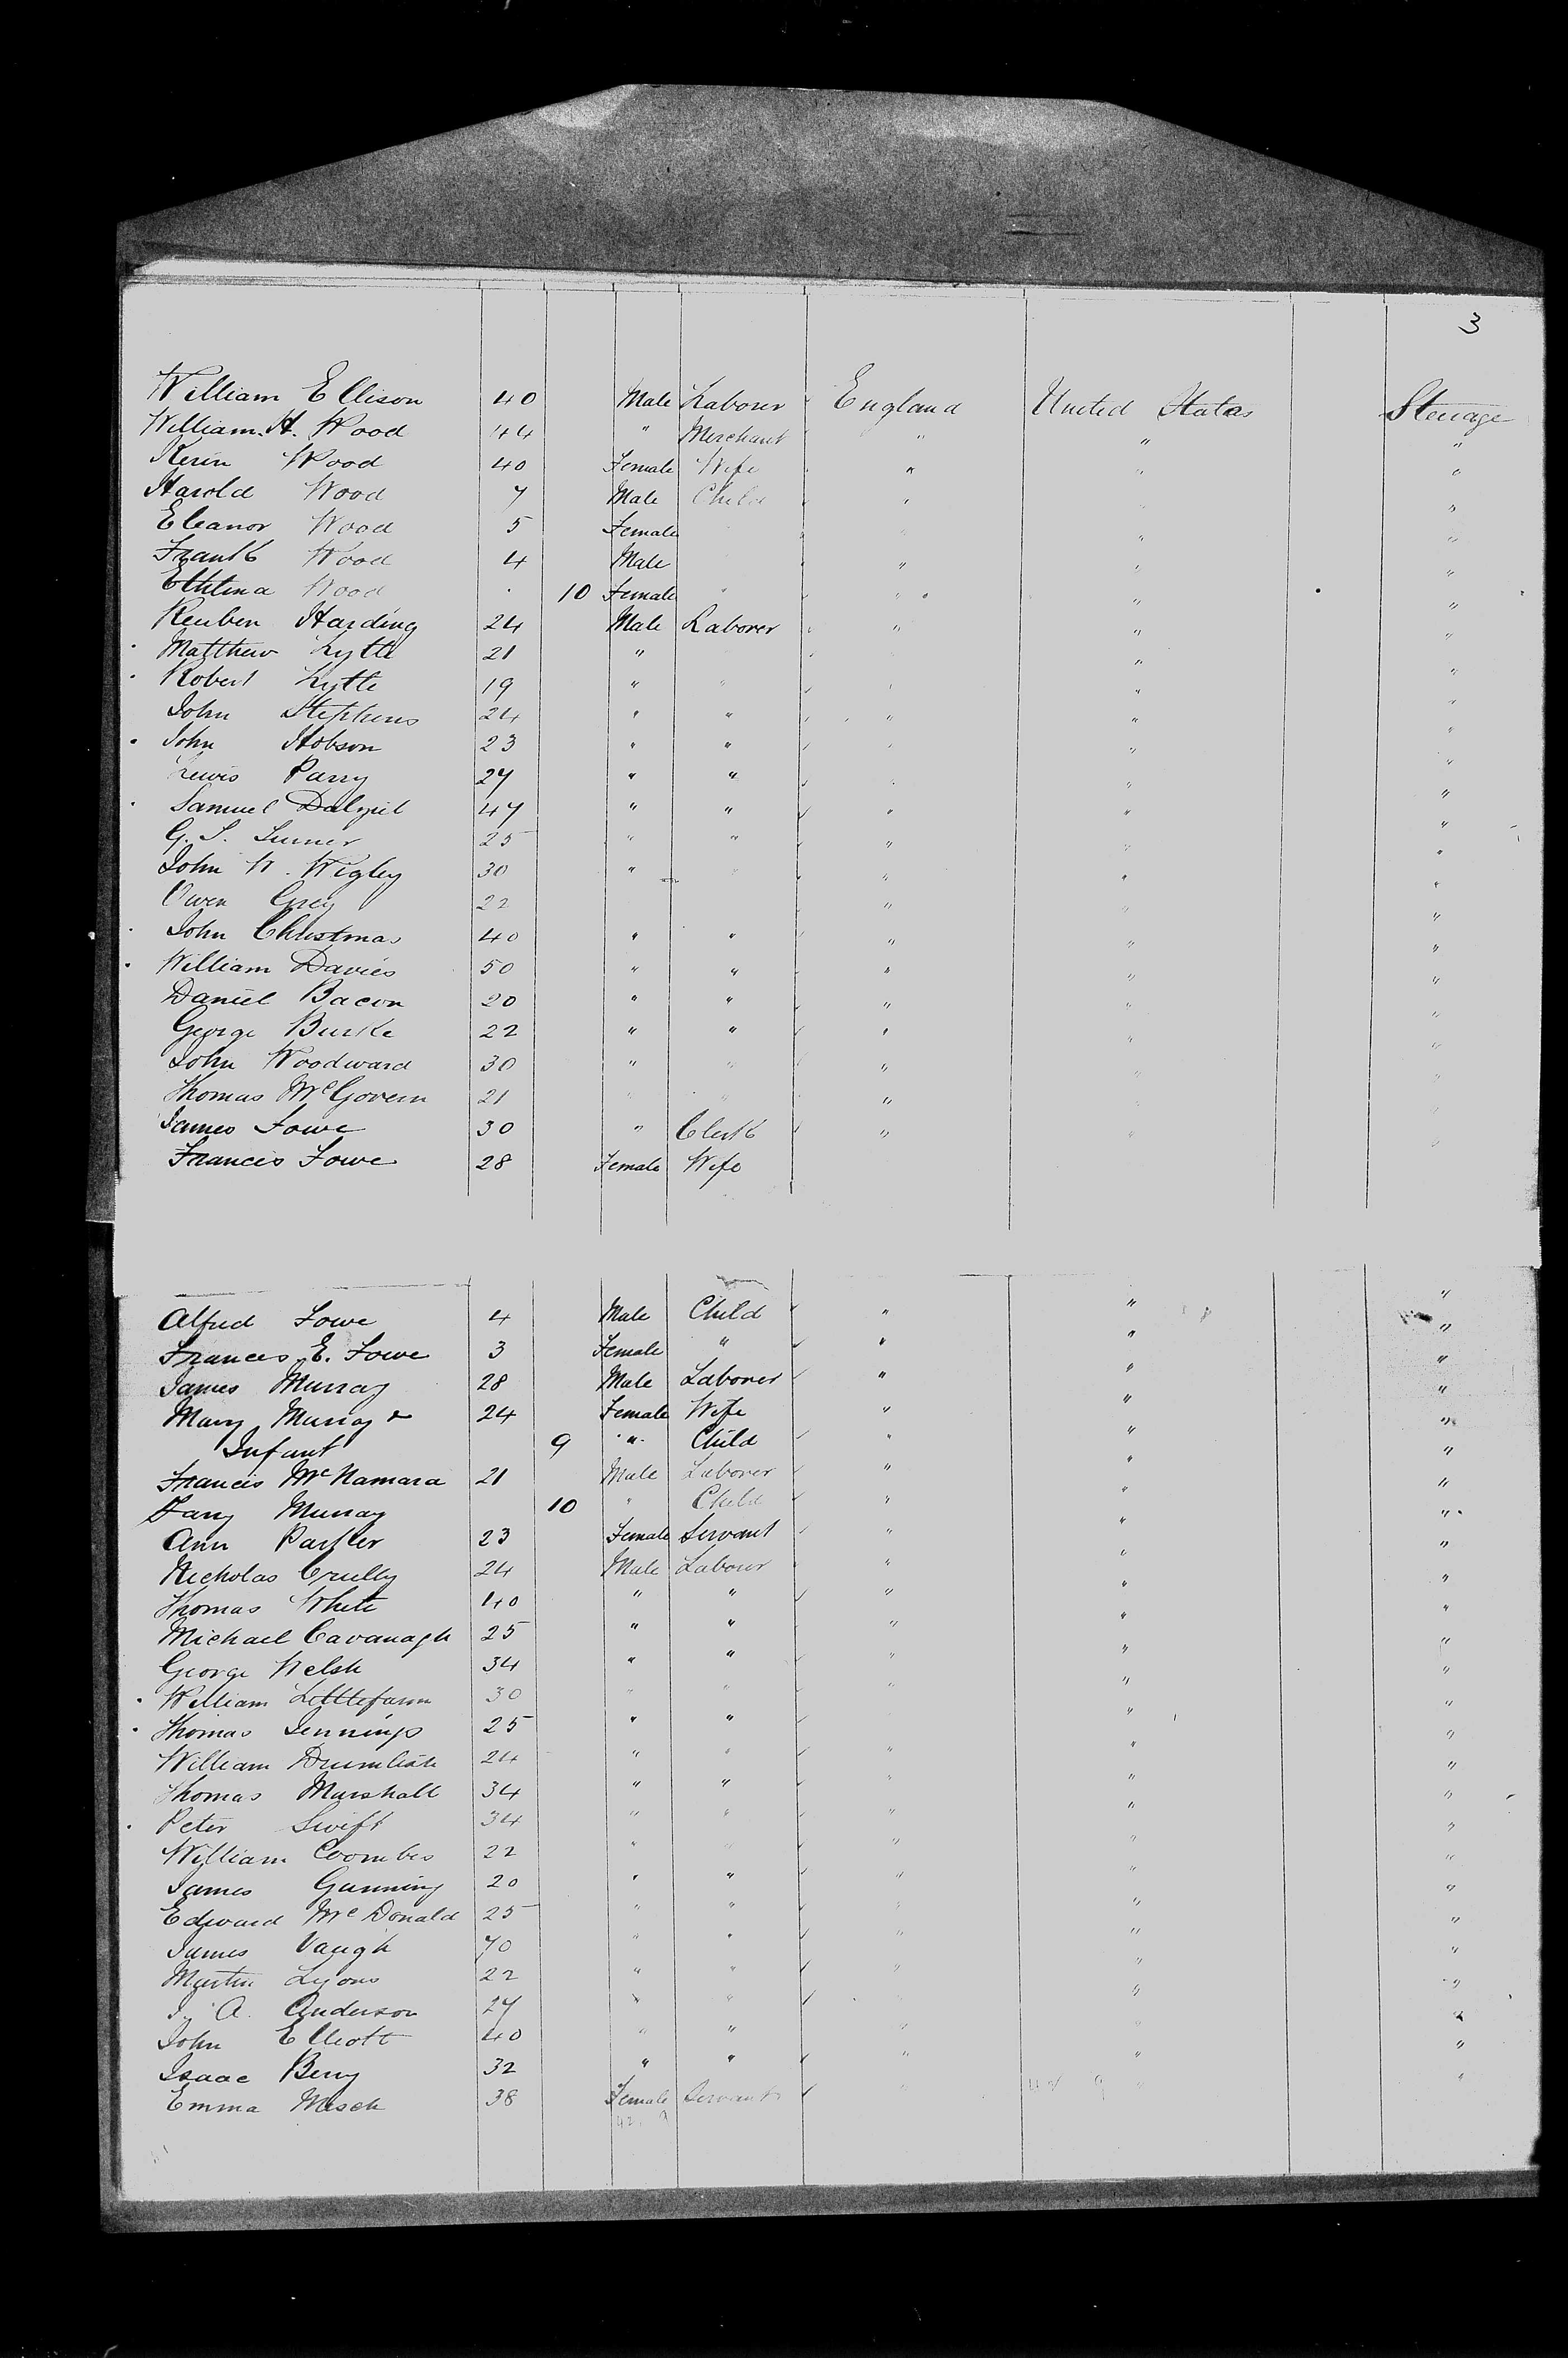 3
William Ellison 40 Male Laborer England United States Steerage
William. H. Wood 44 " Merchant " " "
Wood 40 Female Wife " " "
Harold Wood 7 Male Child " " "
Eleanor Wood 5 Female " " "
Frank Wood 4 Male " " "
Wood 10 Female " " " "
Reuben Harding 24 Male Laborer " " "
Matthew Lytle 21 " " "
Robert Lytle 19 " " " " "
John Stephens 24 " " " " "
John Hobson 23 " " " " "
Lewis Parry 27 " " " " "
Samuel Dalziel 47 " " " " "
G. S. 25 " " " " "
John W. Wigley 30 " " " " "
Owen Grey 22 " " "
John Christmas 40 " " " " "
William Davies 50 " " " " "
Daniel Bacon 20 " " " " "
George Burke 22 " " " " "
John Woodward 30 " " " " "
Thomas McGovern 21 " " " " "
James Lowe 30 " Clerk " " "
Francis Lowe 28 Female Wife
Alfred Lowe 4 Male Child " " "
Frances E. Lowe 3 Female " " " "
James Murray 28 Male Laborer " " "
Mary Murray & 24 Female Wife " " "
Infant 9 " Child " " "
Francis McNamara 21 Male Laborer " " "
Murray 10 " Child " " "
Ann Parker 23 Female Servant " " "
Nicholas Crully 24 Male Laborer " " "
Thomas White 40 " " " " "
Michael Cavanagh 25 " " " " "
George Welsh 34 " " " " "
William 30 " " " "
Thomas Jennings 25 " " " "
William 24 " " " " "
Thomas Marshall 34 " " " " "
Peter Swift 34 " " " " "
William Coombes 22 " " " " "
James Gunning 20 " " " " "
Edward McDonald 25 " " " " "
James Vaugh 70 " " " " "
Martin Lyons 22 " " " " "
A. Anderson 27 " " " "
John Elliott 40 " " " " "
Isaac Berry 32 " " " " "
Emma 38 Female Servant " " "